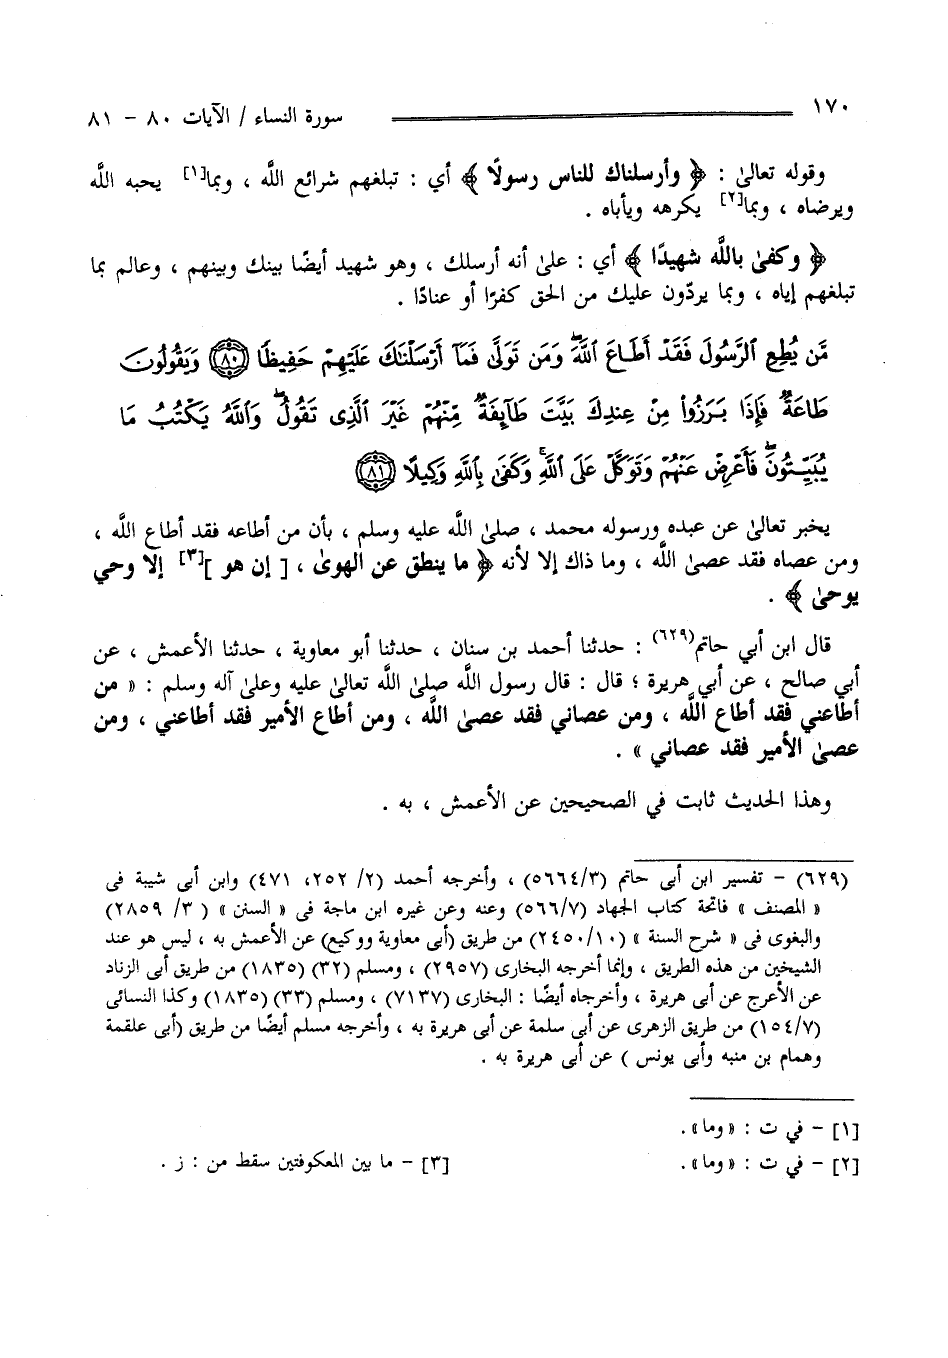 ١٧٠
سورة النساء / الآيات ٨٠ - ٨١
وقوله تعالىٰ : ﴿ وأرسلناك للناس رسولًا ﴾ أي : تبلغهم شرائع الله ، وبما[١] يحبه الله
ويرضاه ، وبما[٢] يكرهه ويأباه .
﴿ وكفىٰ بالله شهيدًا ﴾ أي : علىٰ أنه أرسلك ، وهو شهيد أيضًا بينك وبينهم ، وعالم بما
تبلغهم إياه ، وبما يردّون عليك من الحق كفرًا أو عنادًا .
مَّن يُطِعِ ٱلرَّسُولَ فَقَدْ أَطَاعَ ٱللَّهَۖ وَمَن تَوَلَّىٰ فَمَآ أَرْسَلْنَٰكَ عَلَيْهِمْ حَفِيظًا ﴿٨٠﴾ وَيَقُولُونَ
طَاعَةٌ فَإِذَا بَرَزُوا۟ مِنْ عِندِكَ بَيَّتَ طَآئِفَةٌ مِّنْهُمْ غَيْرَ ٱلَّذِى تَقُولُۖ وَٱللَّهُ يَكْتُبُ مَا
يُبَيِّتُونَۖ فَأَعْرِضْ عَنْهُمْ وَتَوَكَّلْ عَلَى ٱللَّهِۚ وَكَفَىٰ بِٱللَّهِ وَكِيلًا ﴿٨١﴾
يخبر تعالىٰ عن عبده ورسوله محمد ، صلىٰ الله عليه وسلم ، بأن من أطاعه فقد أطاع الله ،
ومن عصاه فقد عصىٰ الله ، وما ذاك إلا لأنه ﴿ ما ينطق عن الهوىٰ ، [ إن هو ][٣] إلا وحي
يوحىٰ ﴾ .
قال ابن أبي حاتم(٦٢٩) : حدثنا أحمد بن سنان ، حدثنا أبو معاوية ، حدثنا الأعمش ، عن
أبي صالح ، عن أبي هريرة ؛ قال : قال رسول الله صلىٰ الله تعالىٰ عليه وعلىٰ آله وسلم : « من
أطاعني فقد أطاع الله ، ومن عصاني فقد عصىٰ الله ، ومن أطاع الأمير فقد أطاعني ، ومن
عصىٰ الأمير فقد عصاني » .
وهذا الحديث ثابت في الصحيحين عن الأعمش ، به .
(٦٢٩) - تفسير ابن أبى حاتم (٥٦٦٤/٣) ، وأخرجه أحمد (٢/ ٢٥٢، ٤٧١) وابن أبى شيبة فى
« المصنف » فاتحة كتاب الجهاد (٥٦٦/٧) وعنه وعن غيره ابن ماجة فى « السنن » ( ٣/ ٢٨٥٩)
والبغوى فى « شرح السنة » (٢٤٥٠/١٠) من طريق (أبى معاوية ووكيع) عن الأعمش به ، ليس هو عند
الشيخين من هذه الطريق ، وإنما أخرجه البخارى (٢٩٥٧) ، ومسلم (٣٢) (١٨٣٥) من طريق أبى الزناد
عن الأعرج عن أبى هريرة ، وأخرجاه أيضًا : البخارى (٧١٣٧) ، ومسلم (٣٣) (١٨٣٥) وكذا النسائى
(١٥٤/٧) من طريق الزهرى عن أبى سلمة عن أبى هريرة به ، وأخرجه مسلم أيضًا من طريق (أبى علقمة
وهمام بن منبه وأبى يونس ) عن أبى هريرة به .
[١] - في ت : «وما».
[٢] - في ت : «وما».
[٣] - ما بين المعكوفتين سقط من : ز .